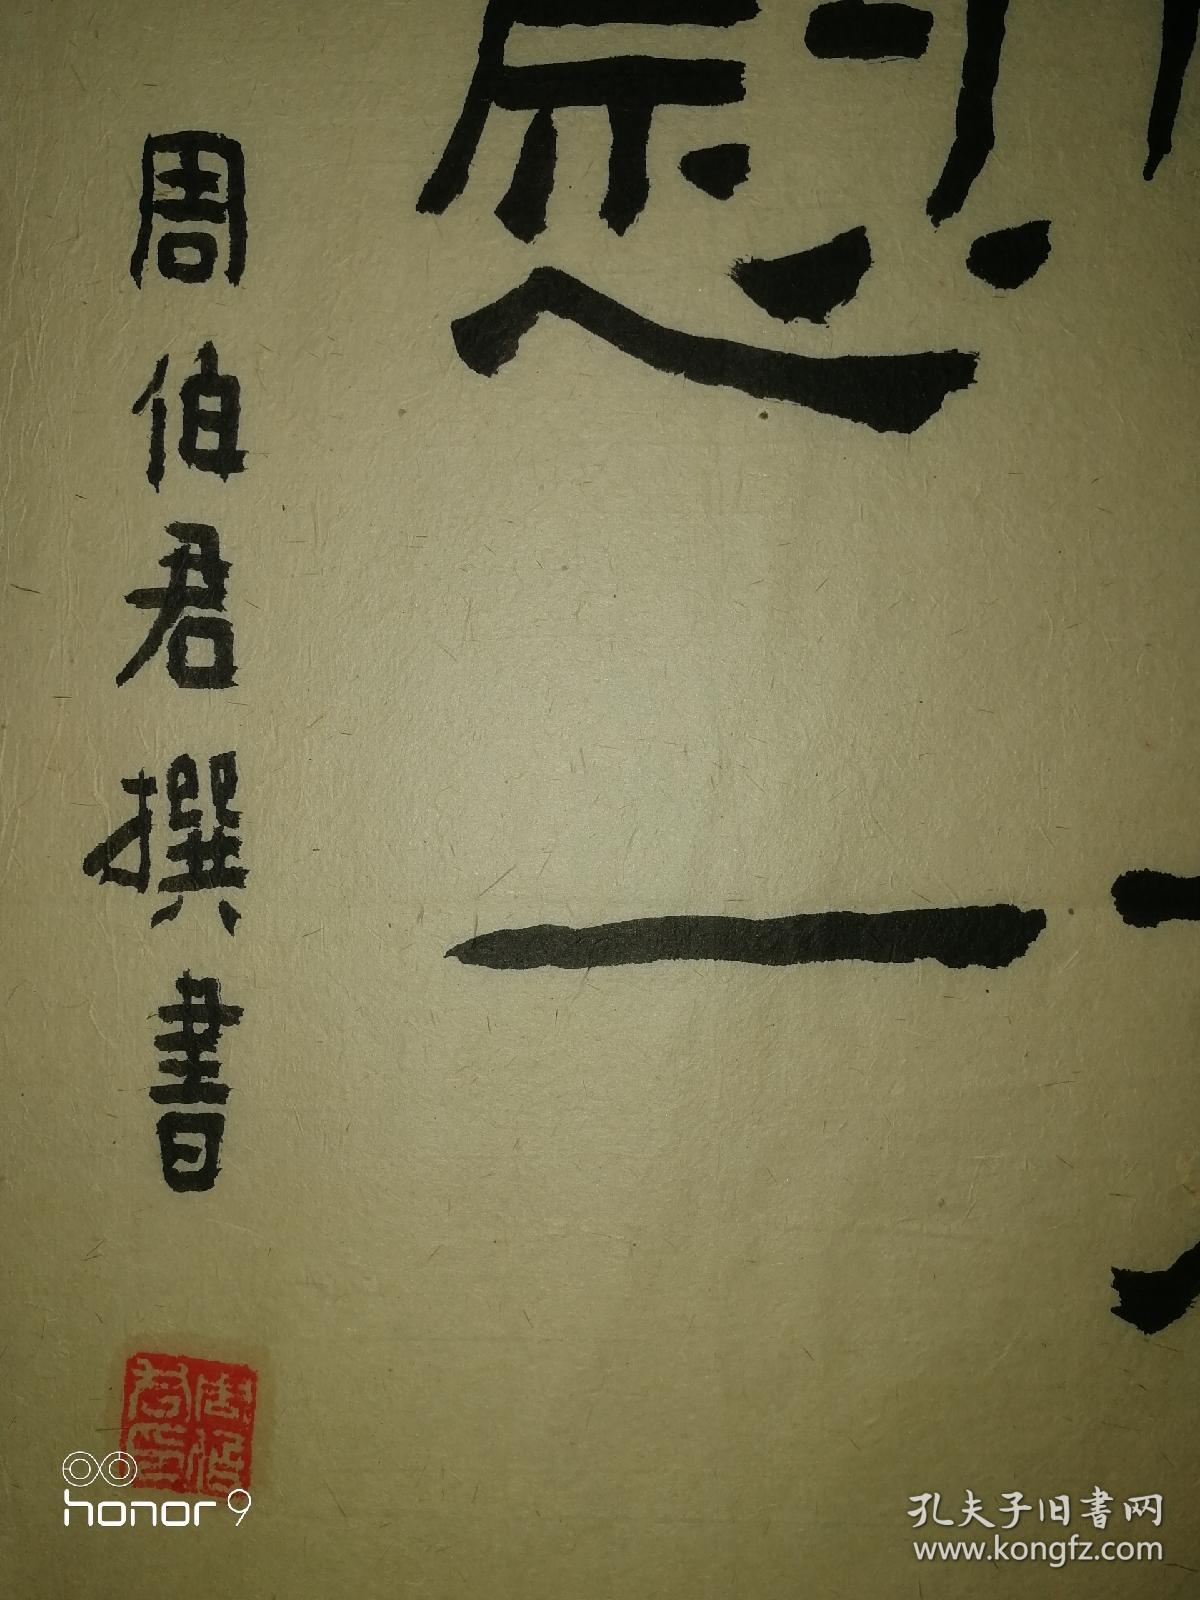 慰
一
周伯君撰書
周伯君印
honor 9
孔夫子旧書网
www.kongfz.com